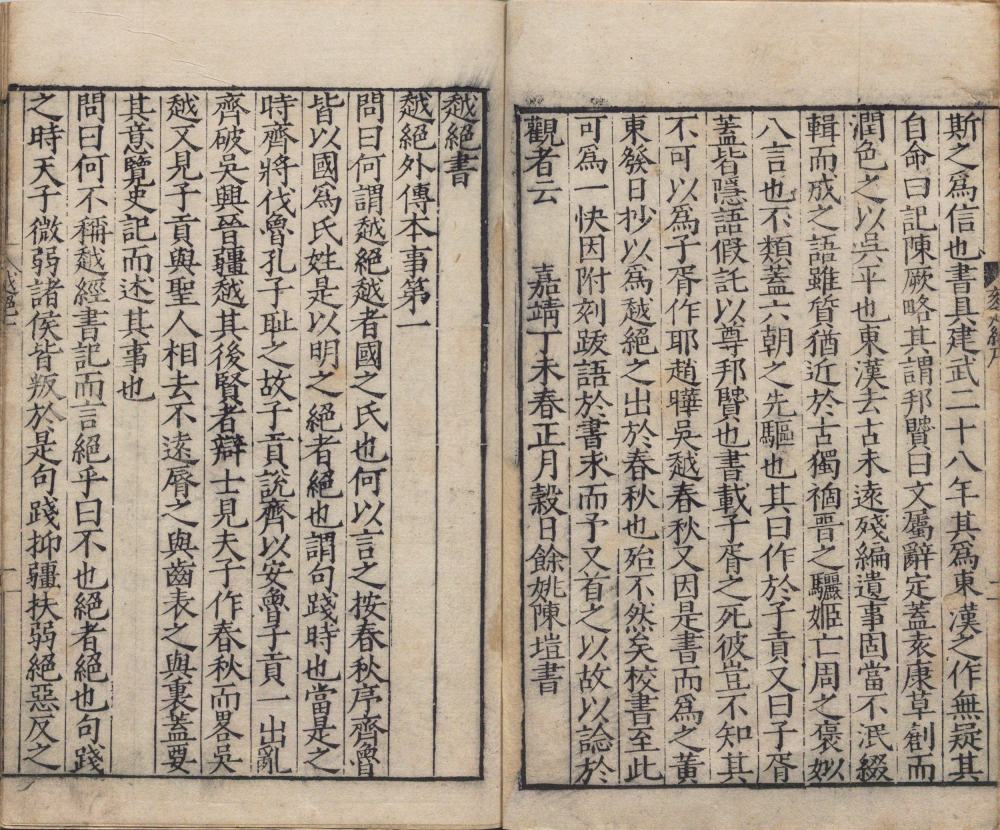 斯之為信也書具建武二十八年其為東漢之作無疑其
自命曰記陳厥略其謂邦賢曰文屬辭定蓋袁康草創而
潤色之以吳平也東漢去古未遠殘編遺事固當不泯綴
輯而成之語雖質猶近於古獨禍晉之驪姬亡周之褒姒
八言也不類蓋六朝之先驅也其曰作於子貢又曰子胥
蓋皆隱語假託以尊邦賢也書載子胥之死彼豈不知其
不可以為子胥作耶趙曄吳越春秋又因是書而為之黃
東發日抄以為越絕之出於春秋也殆不然矣校書至此
可為一快因附刻跋語於書末而予又首之以故以諗於
觀者云 嘉靖丁未春正月穀日餘姚陳塏書
越絕書
越絕外傳本事第一
問曰何謂越絕越者國之氏也何以言之按春秋序齊魯
皆以國為氏姓是以明之絕者絕也謂句踐時也當是之
時齊將伐魯孔子恥之故子貢說齊以安魯子貢一出亂
齊破吳興晉疆越其後賢者辯士見夫子作春秋而畧吳
越又見子貢與聖人相去不遠脣之與齒表之與裏蓋要
其意覽史記而述其事也
問曰何不稱越經書記而言絕乎曰不也絕者絕也句踐
之時天子微弱諸侯皆叛於是句踐抑疆扶弱絕惡反之